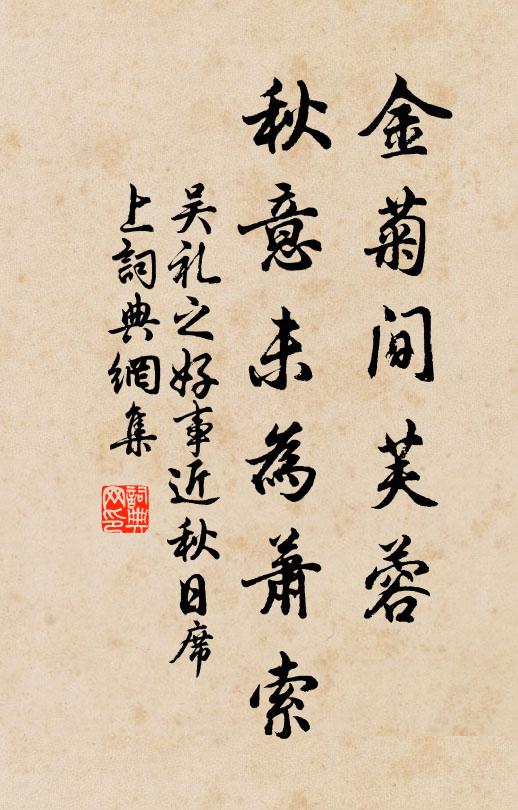 金菊间芙蓉
秋意未為蕭索
吴礼之好事近秋日席
上詞典網集
詞典
网印